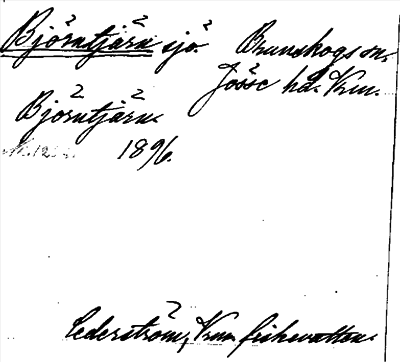 Björntjärn sjö. Brunskogs sn.
Jösse hd. Krm.
Björntjärn.
1896.
Cederström, Krm. fiskevatten.